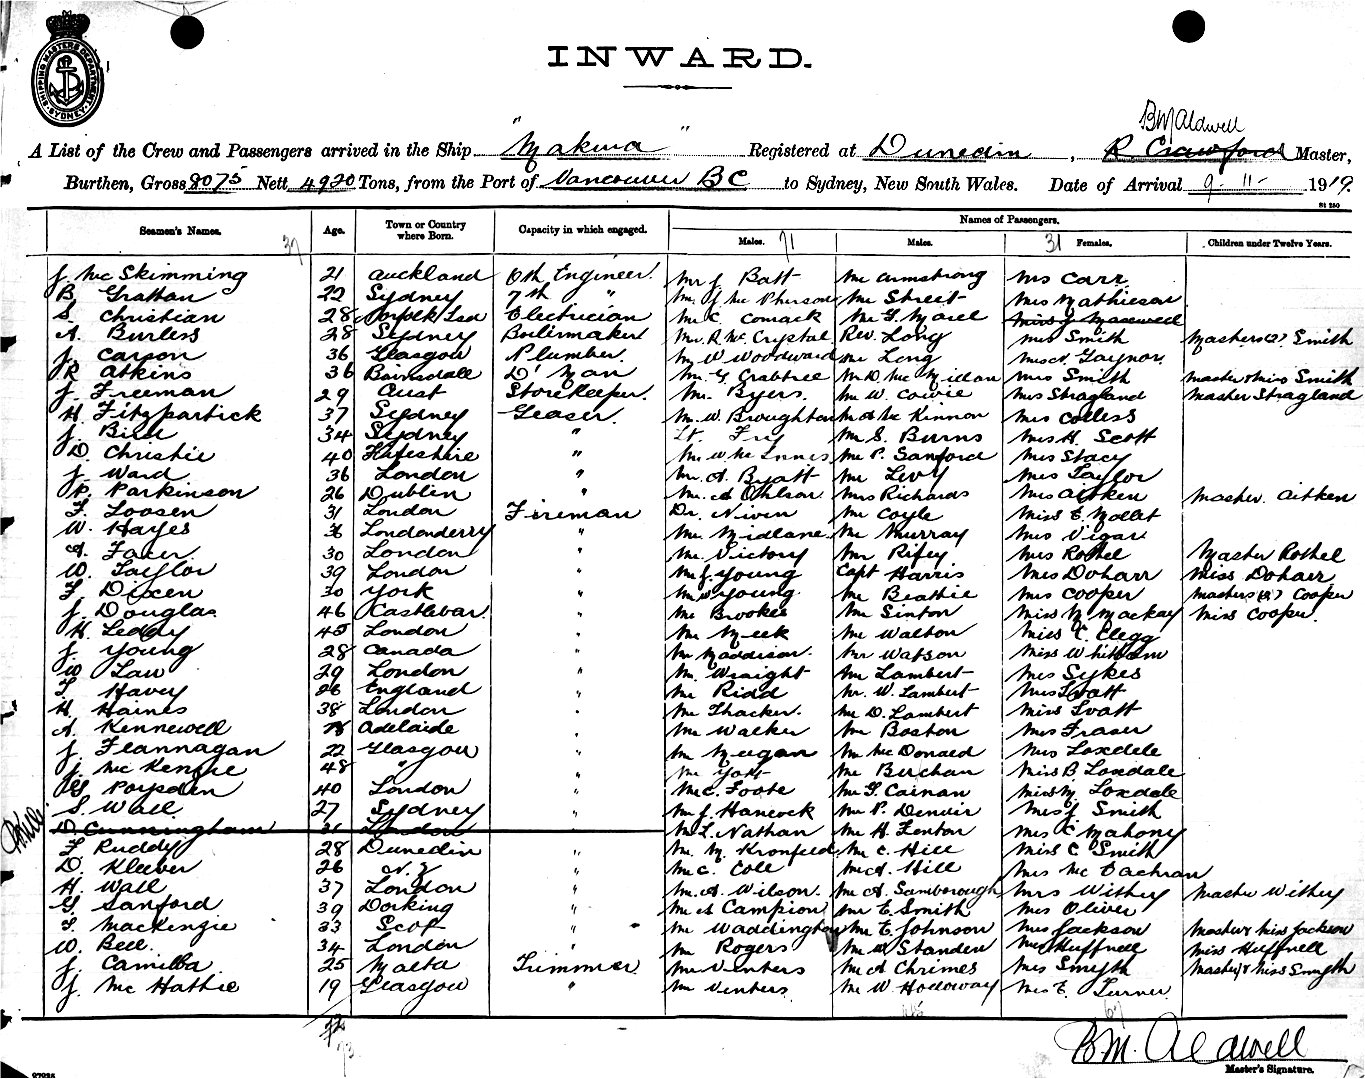 SHIPPING MASTERS DEPARTMENT SYDNEY
INWARD.
B M Aldwell
A List of the Crew and Passengers arrived in the Ship "Makura" Registered at Dunedin, R. Crawford Master,
Burthen, Gross 8075 Nett 4920 Tons, from the Port of Vancouver BC to Sydney, New South Wales. Date of Arrival 9-11-1919.
S1 250
Seamen's Names. 37 Age. Town or Country where Born. Capacity in which engaged. Names of Passengers.
Males. 71 Males. 31 Females. Children under Twelve Years.
J. McSkimming 21 Auckland 6th Engineer. Mr J. Batt Mr Armstrong Mrs Carr
B. Grattan 22 Sydney 7th " Mr. J. McPherson Mr Street Mrs Mathieson
S. Christian 28 Norfolk Isd Electrician Mr C. Comack Mr G. Mariel Miss J Maxwell
A. Burles 28 Sydney Boilermaker Mr. R. McCrystal Rev. Long Mrs Smith Masters (2) Smith
J. Carson 36 Glasgow Plumber. Mr W Woodward Mr Long Miss N. Gaynor
R. Atkins 36 Bairnsdale D' Man Mr. G. Crabtree Mr D. McMillan Mrs Smith Master & Miss Smith
J. Freeman 29 Aust Storekeeper. Mr. Byers. Mr W. Cowie Mrs Stragland Master Stragland
H. Fitzpartick 37 Sydney Greaser. Mr. W. Broughton Mr A McKinnon Mrs Colless
J. Bird 34 Sydney " Lt. Fry Mr S. Burns Miss H. Scott
D. Christie 40 " Mr W McInnes Mr P. Sanford Mrs Stacy
J. Ward 36 London " Mr. A. Byatt Mr Levy Mrs Taylor
P. Parkinson 26 Dublin " Mr. A Ohlson Mrs Richards Mrs Aitken Master. Aitken
F. Loosen 31 London Fireman Dr. Niven Mr Coyle Miss E. Mollet
W. Hayes 36 Londonderry " Mr. Midlane Mr Murray Mrs Vigar
A. Facer 30 London " Mr. Victory Mr Rifey Mrs Rothel Master Rothel
W. Taylor 39 London " Mr J. Young Capt Harris Mrs Doharr Miss Doharr
F. Dixen 30 York " Mr W Young. Mr Beattie Mrs Cooper Masters (2) Cooper
J. Douglas 46 Castlebar " Mr Brookes Mr Sinton Miss M Mackay Miss Cooper.
H. Leddy 45 London " Mr Meek Mr Walton Miss C. Clegg
J. Young 28 Canada " Mr Maddison. Mr Watson Miss Whitham
W. Law 29 London " Mr. Wraight Mr Lambert Mrs Sykes
T. Havey 26 England " Mr Ridd Mr. W. Lambert Mrs Svatt
H. Haines 38 London " Mr Thacker. Mr D. Lambert Miss Svatt
A. Kennewell Adelaide " Mr Walker Mr Boston Mrs Fraser
J. Flannagan 22 Glasgow " Mr Meegan Mr McDonald Mrs Loxdale
J. McKenzie 48 " " Mr York Mr Buchan Miss B. Loxdale
G. Poysden 40 London " Mr C. Foote Mr G. Cainan Miss M Loxdale
S. Wall 27 Sydney " Mr J. Hancock Mr P. Denvir Miss J Smith
D. Cunningham 31 London Mr L. Nathan Mr H. Fenton Mrs C. Mahony
F. Ruddy 28 Dunedin " Mr. M. Kronfeld Mr C. Hill Miss C Smith
D. Kleeber 26 N.Z " Mr C. Cole Mr A. Hill Mrs McEachran
H. Wall 37 London " Mr. A. Wilson. Mr A. Samborough Mrs Withey Master Withey
G. Sanford 39 Dorking " Mr A Campion Mr E. Smith Mrs Oliver
T. Mackenzie 33 Scot " Mr Waddington Mr E. Johnson Mrs Jackson Master & Miss Jackson
W. Bell. 34 London " Mr Rogers Mr W Standen Mrs Huffnell Miss Huffnell
J. Camilba 25 Malta Trimmer Mr Venters Mr A Chrimes Mrs Smyth Master & Miss Smyth
J. McHattie 19 Glasgow " Mr Venters. Mr W. Holloway Mrs E. Turner.
72
73
67
B M. Aldwell
Master's Signature.